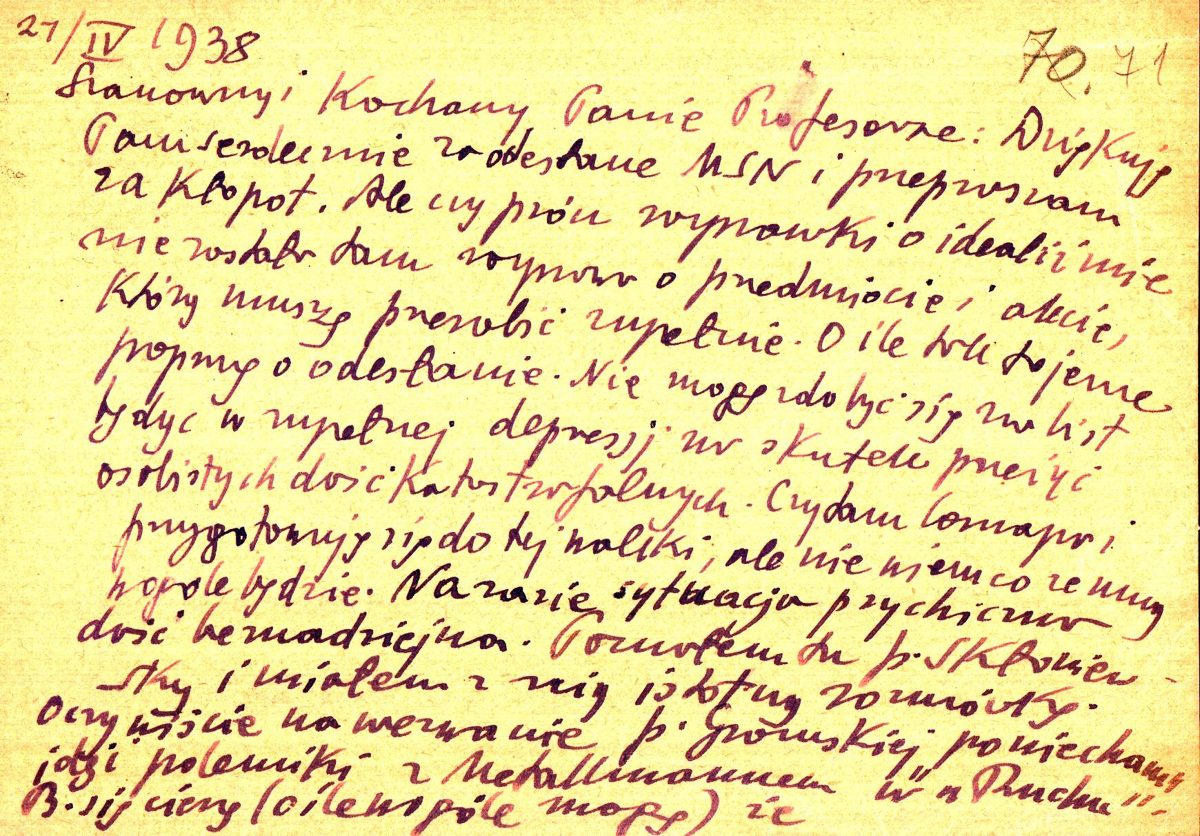 27/IV 1938
70. 71
Szanowny i Kochany Panie Profesorze: Dziękuję
Panu serdecznie za odesłane MSN i przepraszam
za kłopot. Ale czy prócz rozprawki o idealizmie
nie została tam rozprawa o przedmiocie i akcie,
który muszę przerobić zupełnie. O ile tak to jeszcze
poproszę o odesłanie. Nie mogę zdobyć się na list
będąc w zupełnej depresji na skutek przeżyć
osobistych dość katastrofalnych. Czytam i
przygotowuję się do tej walki, ale nie wiem co ze mną
wogóle będzie. Na razie sytuacja psychiczna
dość beznadziejna. Poznałem tu p. Skłoniew-
ską i miałem z nią istotną rozmówkę.
Oczywiście na wezwanie p. Gromskiej poniecham
idei polemiki z Metallmannem w "Ruchu".
B. się cieszę (o ile wogóle mogę) że